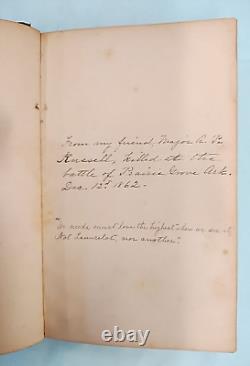 From my friend, Major A. P.
Russell, killed at the
battle of Prairie Grove Ark.
Dec. 12th 1862.
"We needs must love the highest when we see it,
Not Launcelot, nor another."
© thumbs2.com